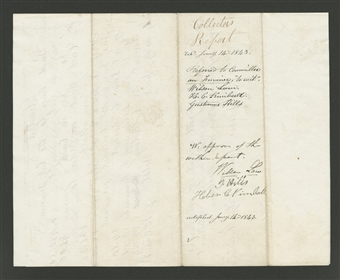 Collector's
Report
Jany 14th 1843.
Referred to Committee
on Finance, to wit
Wilson Law
H. C. Kimball
Gustavus Hills
We approve of the
within report.
Wilson Law
G. Hills
Heber C. Kimball
accepted Jany 14th 1843